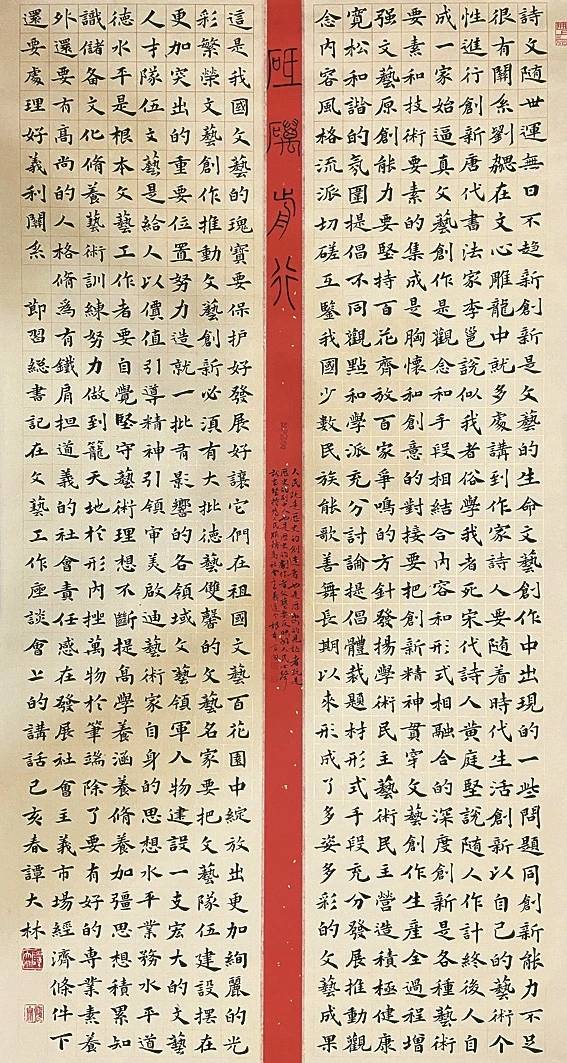 詩文隨世運無日不趨新創新是文藝的生命文藝創作中出現的一些問題同創新能力不足
很有關系劉勰在文心雕龍中就多處講到作家詩人要隨着時代生活創新以自己的藝術个
性進行創新唐代書法家李邕說似我者俗學我者死宋代詩人黃庭堅說隨人作計終後人自
成一家始逼真文藝創作是觀念和手段相結合內容和形式相融合的深度創新是各種藝術
要素和技術要素的集成是胸懷和創意的對接要把創新精神貫穿文藝創作生產全過程增
强文藝原創能力要堅持百花齊放百家爭鳴的方針發揚學術民主藝術民主營造積極健康
寬松和諧的氛圍提倡不同觀點和學派充分討論提倡體裁題材形式手段充分發展推動觀
念內容風格流派切磋互鑒我國少數民族能歌善舞長期以來形成了多姿多彩的文藝成果
砥礪前行
人民既是歷史的創造者也是歷史的見證者既是
歷史的劇中人也是歷史的劇作者文藝要反映好人民心聲
就要堅持為人民服務為社會主義
這是我國文藝的瑰寶要保护好發展好讓它們在祖國文藝百花園中綻放出更加絢麗的光
彩繁榮文藝創作推動文藝創新必須有大批德藝雙馨的文藝名家要把文藝隊伍建設擺在
更加突出的重要位置努力造就一批有影響的各領域文藝領軍人物建設一支宏大的文藝
人才隊伍文藝是給人以價值引導精神引領審美啟迪藝術家自身的思想水平業務水平道
德水平是根本文藝工作者要自覺堅守藝術理想不斷提高學養涵養脩養加彊思想積累知
識儲备文化脩養藝術訓練努力做到籠天地於形內挫萬物於筆端除了要有好的專業素養
外還要有高尚的人格脩為有鐵肩担道義的社會責任感在發展社會主義市場經濟條件下
還要處理好義利關系 節習総書記在文藝工作座談會上的講話己亥春譚大林